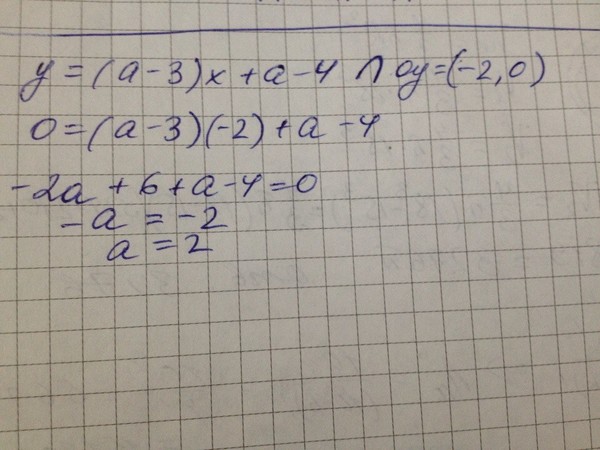 y = (a - 3)x + a - 4 ∩ oy = (-2, 0)
0 = (a - 3)(-2) + a - 4
-2a + 6 + a - 4 = 0
-a = -2
a = 2